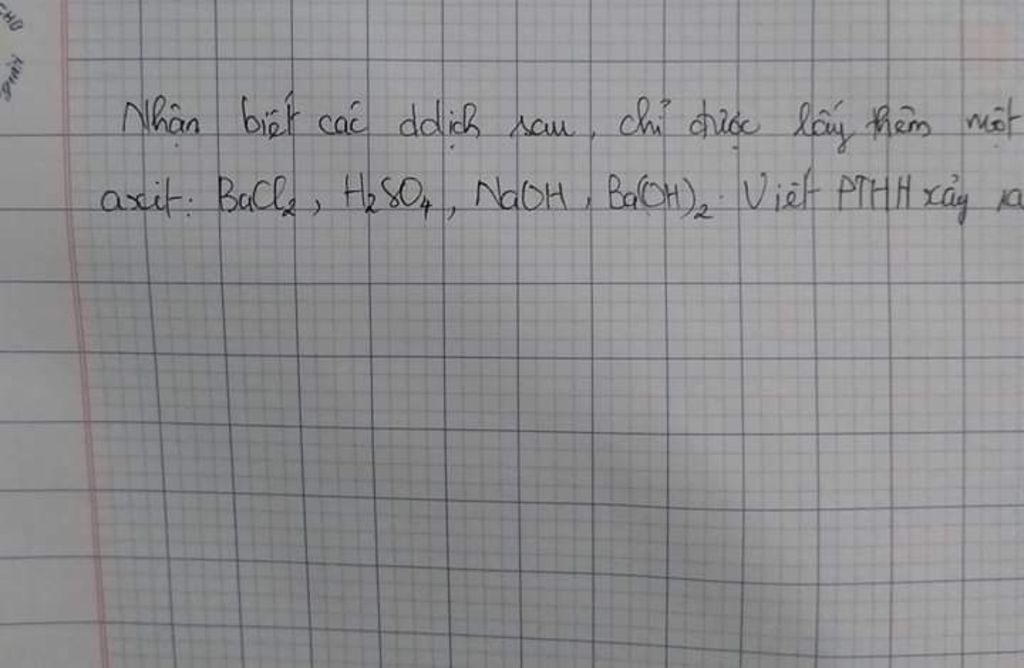 Nhận biết các ddịch sau, chỉ được lấy thêm một
axit: BaCl₂, H₂SO₄, NaOH, Ba(OH)₂. Viết PTHH xảy ra